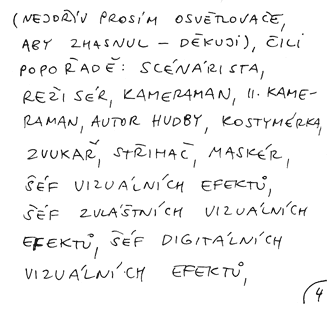 (NEJDŘÍV PROSÍM OSVĚTLOVAČE,
ABY ZHASNUL – DĚKUJI), ČILI
POPOŘADĚ: SCÉNÁRISTA,
REŽISÉR, KAMERAMAN, II. KAME-
RAMAN, AUTOR HUDBY, KOSTYMÉRKA,
ZVUKAŘ, STŘIHAČ, MASKÉR,
ŠÉF VIZUÁLNÍCH EFEKTŮ,
ŠÉF ZVLÁŠTNÍCH VIZUÁLNÍCH
EFEKTŮ, ŠÉF DIGITÁLNÍCH
VIZUÁLNÍCH EFEKTŮ,
4